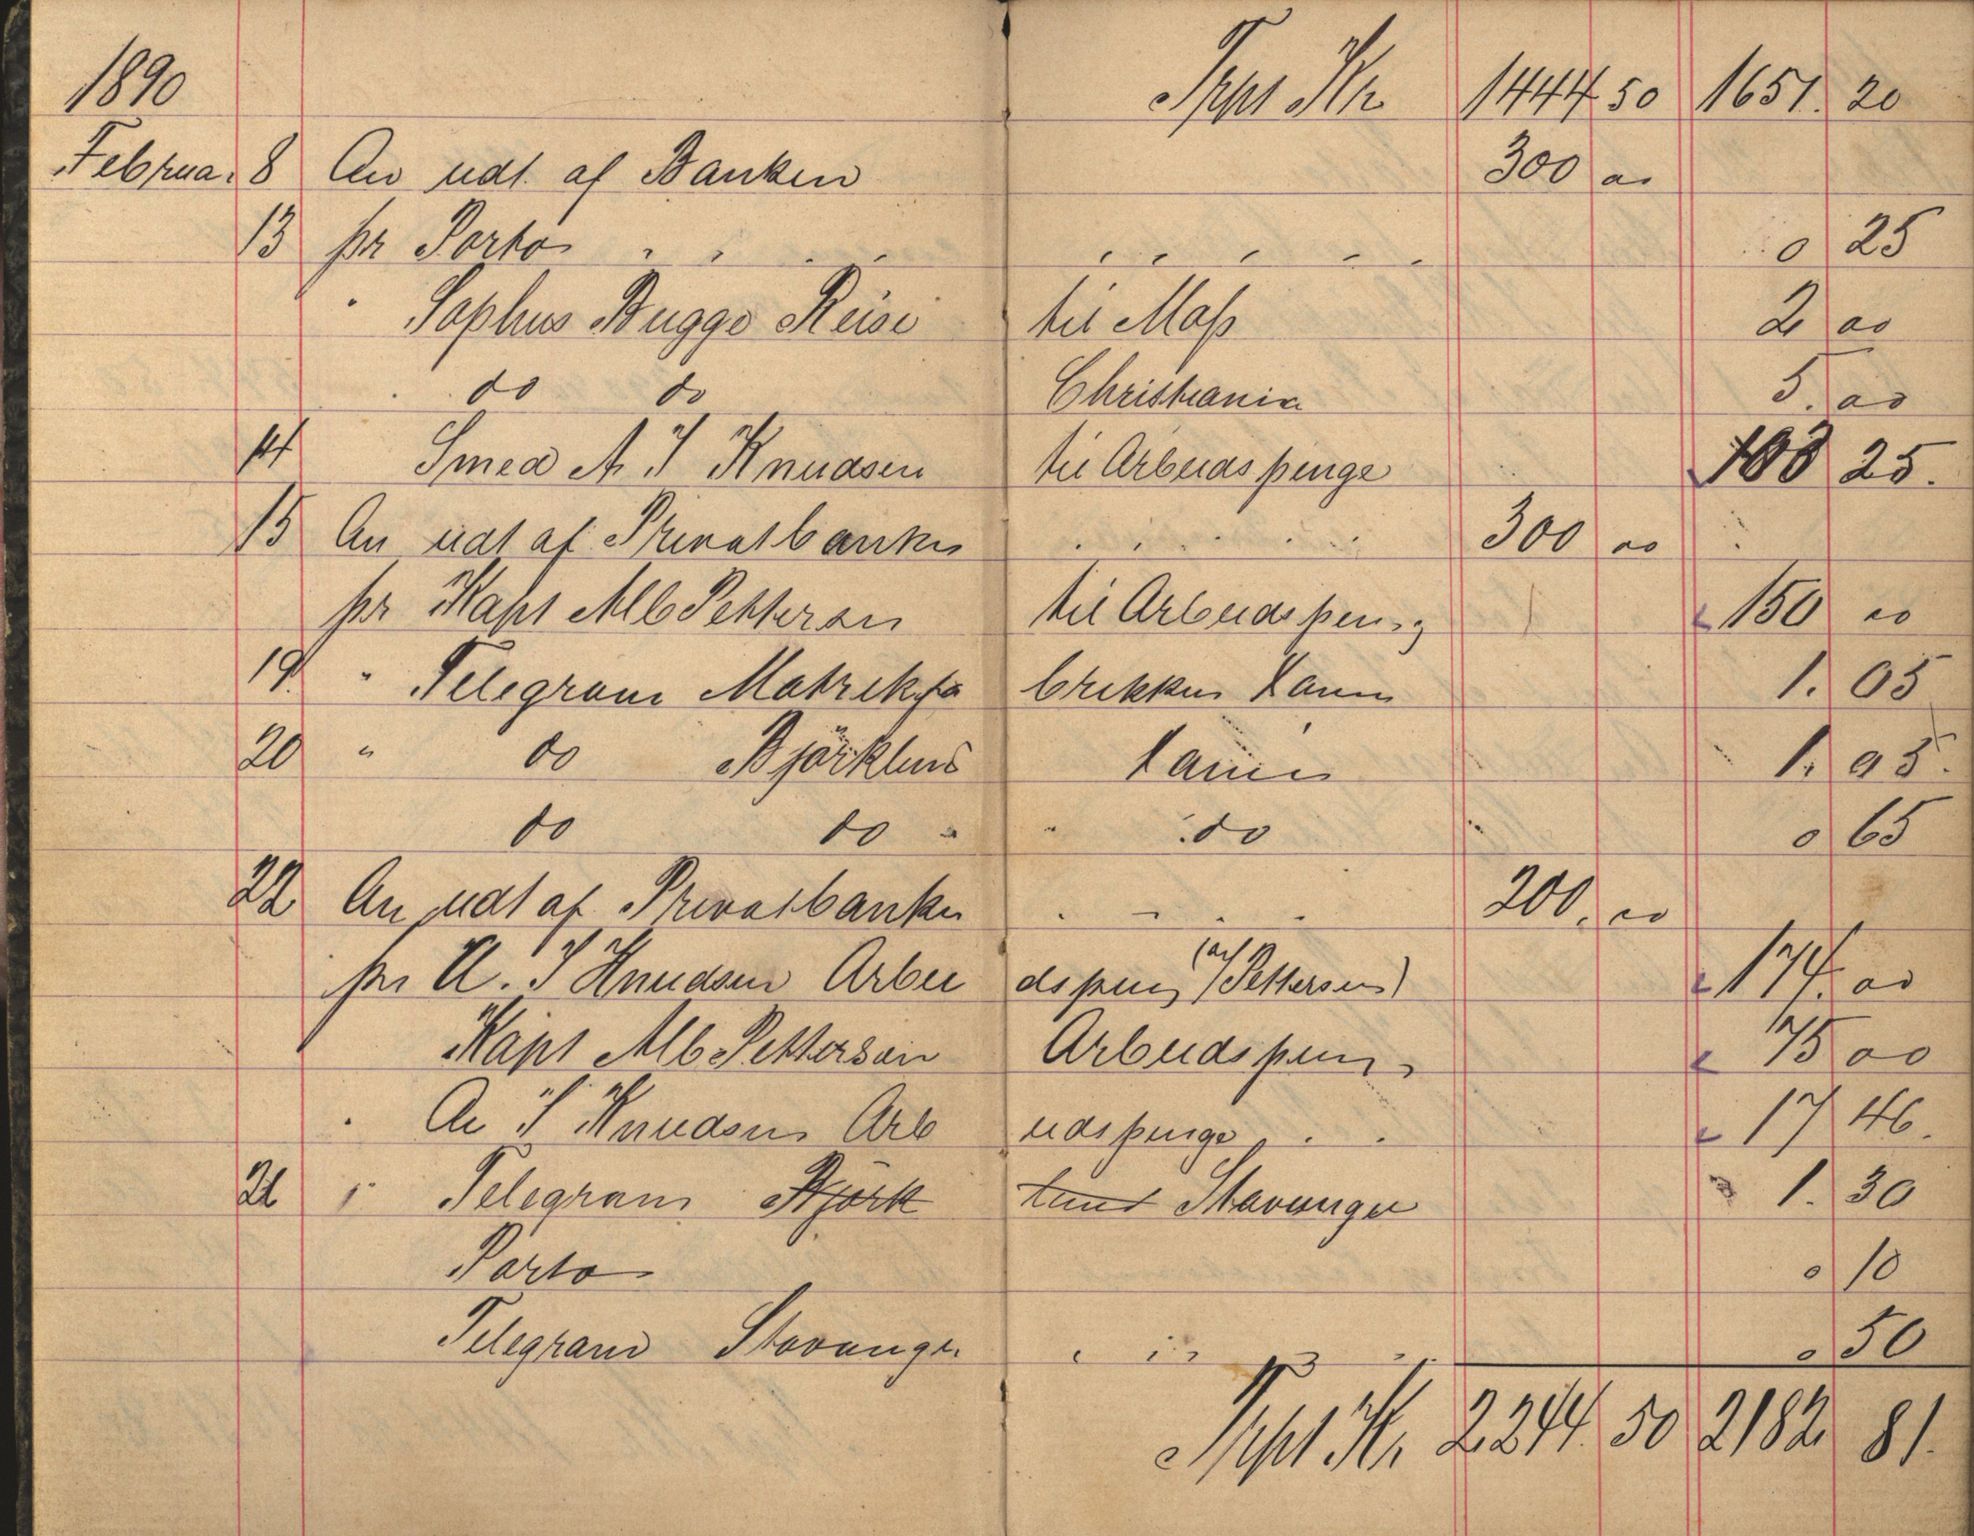 1890 Trpt Kr 1444 50 1651. 20
Februar 8 An udt. af Banken 300 00
13 pr Porto 0 25
" Sophus Bugge Reise til Moss 2 00
do do Christiania 5. 00
14 Smed A S Knudsen til Arbeidspenge 103 25.
15 An udt af Privatbanken 300 00
pr Kapt Alb Pettersen til Arbeidspeng 150 00
19. " Telegram 1. 05
20 " do Björklund 1. 05.
do do " " do 0 65
22 An udt af Privatbanken 200. 00
pr A. S Knudsen Arbeidspeng (af Pettersen) 174. 00
Kapt Alb Pettersen Arbeidspeng 75 00
" A S Knudsen Arbeidspenge 17 46.
" Telegram Björklund Stavanger 1. 30
Porto 0 10
Telegram Stavanger 0 50
Trpt Kr. 2244. 50 2182 81.